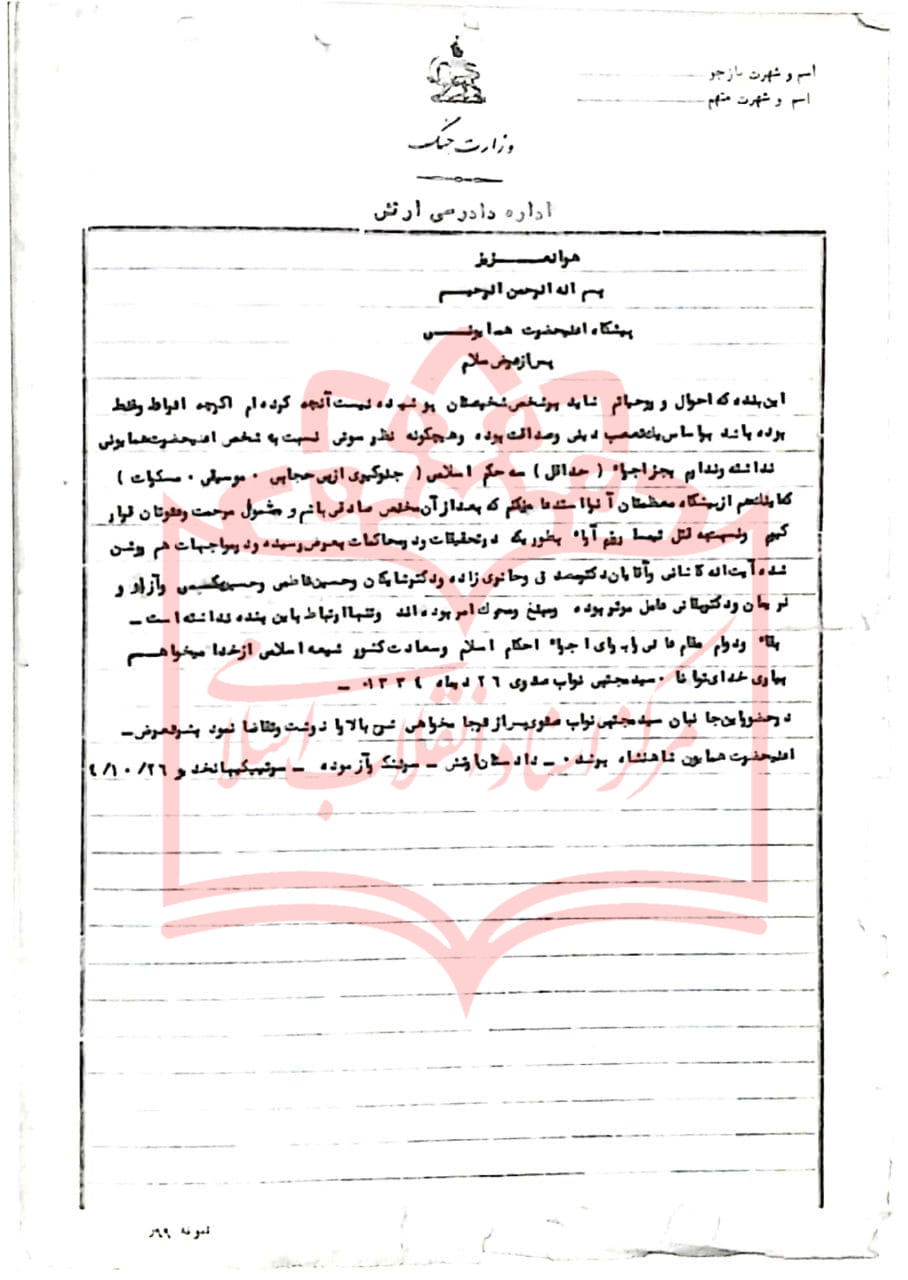 اسم و شهرت بازجو
اسم و شهرت متهم
وزارت جنگ
اداره دادرسی ارتش
هوالعـــــزیز
بسم اله الرحمن الرحیــم
پیشگاه اعلیحضرت همایونـــی
پس از عرض سلام
این بنده که احوال و روحیاتم شاید بر شخص شخیصتان پوشیده نیست آنچه کرده ام اگرچه افراط و غلط
بوده باشد بر اساس یک تعصب دینی و صداقت بوده و هیچگونه نظر سوئی نسبت به شخص اعلیحضرت همایونی
نداشته و ندارم بجز اجراء ( حداقل ) سه حکم اسلامی ( جلوگیری از بی حجابی ۰ موسیقی ۰ مسکرات )
که از پیشگاه معظمتان آنرا استدعا میکنم که بعد از آن مخلص صادقی باشم و مشمول مرحمت و عفوتان قرار
گیرم و نسبت به قتل تیمسار رزم آراء بطوریکه در تحقیقات و در محاکمات بعرض رسیده و در مواجهات هم روشن
شده آیت اله کاشانی و آقایان دکتر مصدق و حائری زاده و دکتر شایگان و حسین فاطمی و حسین مکی و آزاد و
نریمان و دکتر بقائی عامل موثر بوده و مبلغ و محرک امر بوده اند و تنها ارتباط باین بنده نداشته است ــ
بقاء و دوام مقام عالی را برای اجراء احکام اسلام و سعادت کشور شیعه اسلامی از خدا میخواهــم
بیاری خدای توانا ۰ سید مجتبی نواب صفوی ۲۶ دیماه ۱۳۳۴ ــ
در حضور این جانبان سید مجتبی نواب صفوی پس از فرجا مخواهی شرح بالا را نوشت و تقاضا نمود بشرفعرض ــ
اعلیحضرت همایون شاهنشاه برسد ۰ ــ دادستان ارتش ــ سرلشگر آزموده ــ سرتیپ کیهانخدیو ۴/۱۰/۲۶
مرکز اسناد انقلاب اسلامی
نمونه ۹۹ر